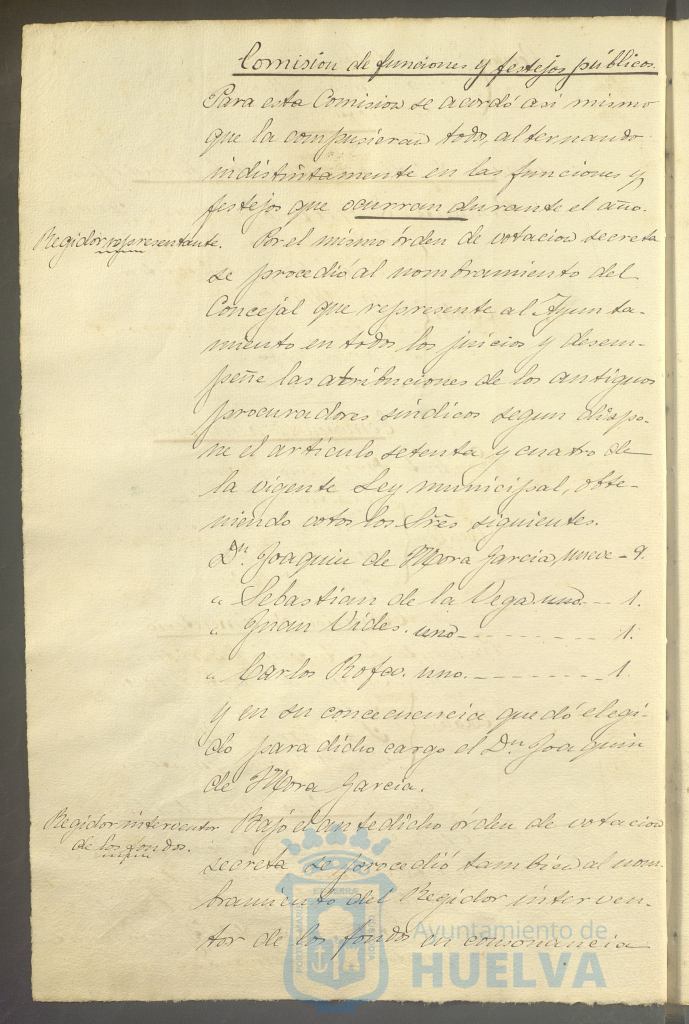 Comision de funciones y festejos públicos.
Para esta Comision se acordó asi mismo
que la compusieran todos, alternando
indistintamente en las funciones y
festejos que ocurran durante el año.
Regidor representante.
Por el mismo órden de votacion secreta
se procedió al nombramiento del
Concejal que represente al Ayunta-
miento en todos los juicios y desem-
peñe las atribuciones de los antiguos
procuradores síndicos segun dispo-
ne el artículo setenta y cuatro de
la vigente Ley municipal, obte-
niendo votos los Sres siguientes.
Dn. Joaquin de Mora Garcia, nueve - 9.
" Sebastian de la Vega. uno - - - 1.
" Juan Vides. uno - - - - - - - - 1.
" Carlos uno. - - - - - - - - 1.
y en su concecuencia quedó elegi-
do para dicho cargo el Dn Joaquin
de Mora Garcia.
Regidor interventor
de los fondos.
Bajo el antedicho órden de votacion
secreta se procedió tambien al nom-
bramiento del Regidor interven-
tor de los fondos en consonancia
Ayuntamiento de
HUELVA